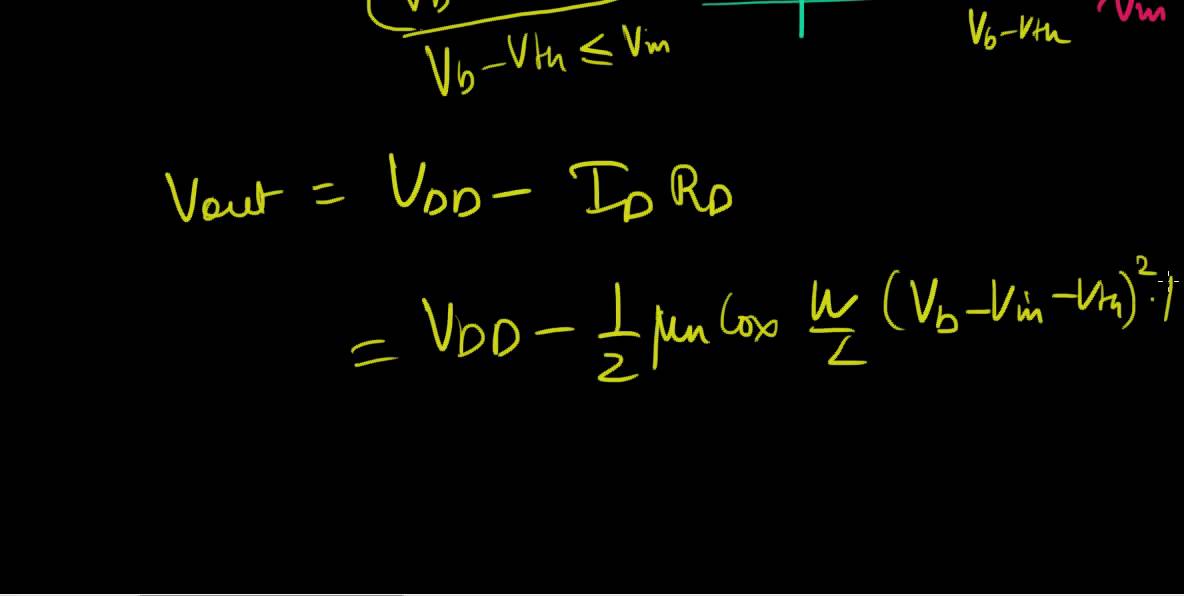 Vb-Vth ≤ Vin
Vb-Vth
Vin
Vout = VDD - ID RD
= VDD - 1/2 μn Cox W/L (Vb-Vin-Vth)² ·